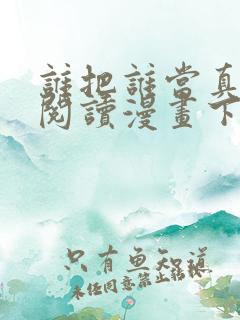 誰把誰當真
閱讀漫畫下
只有魚知道
未经同意禁止转载